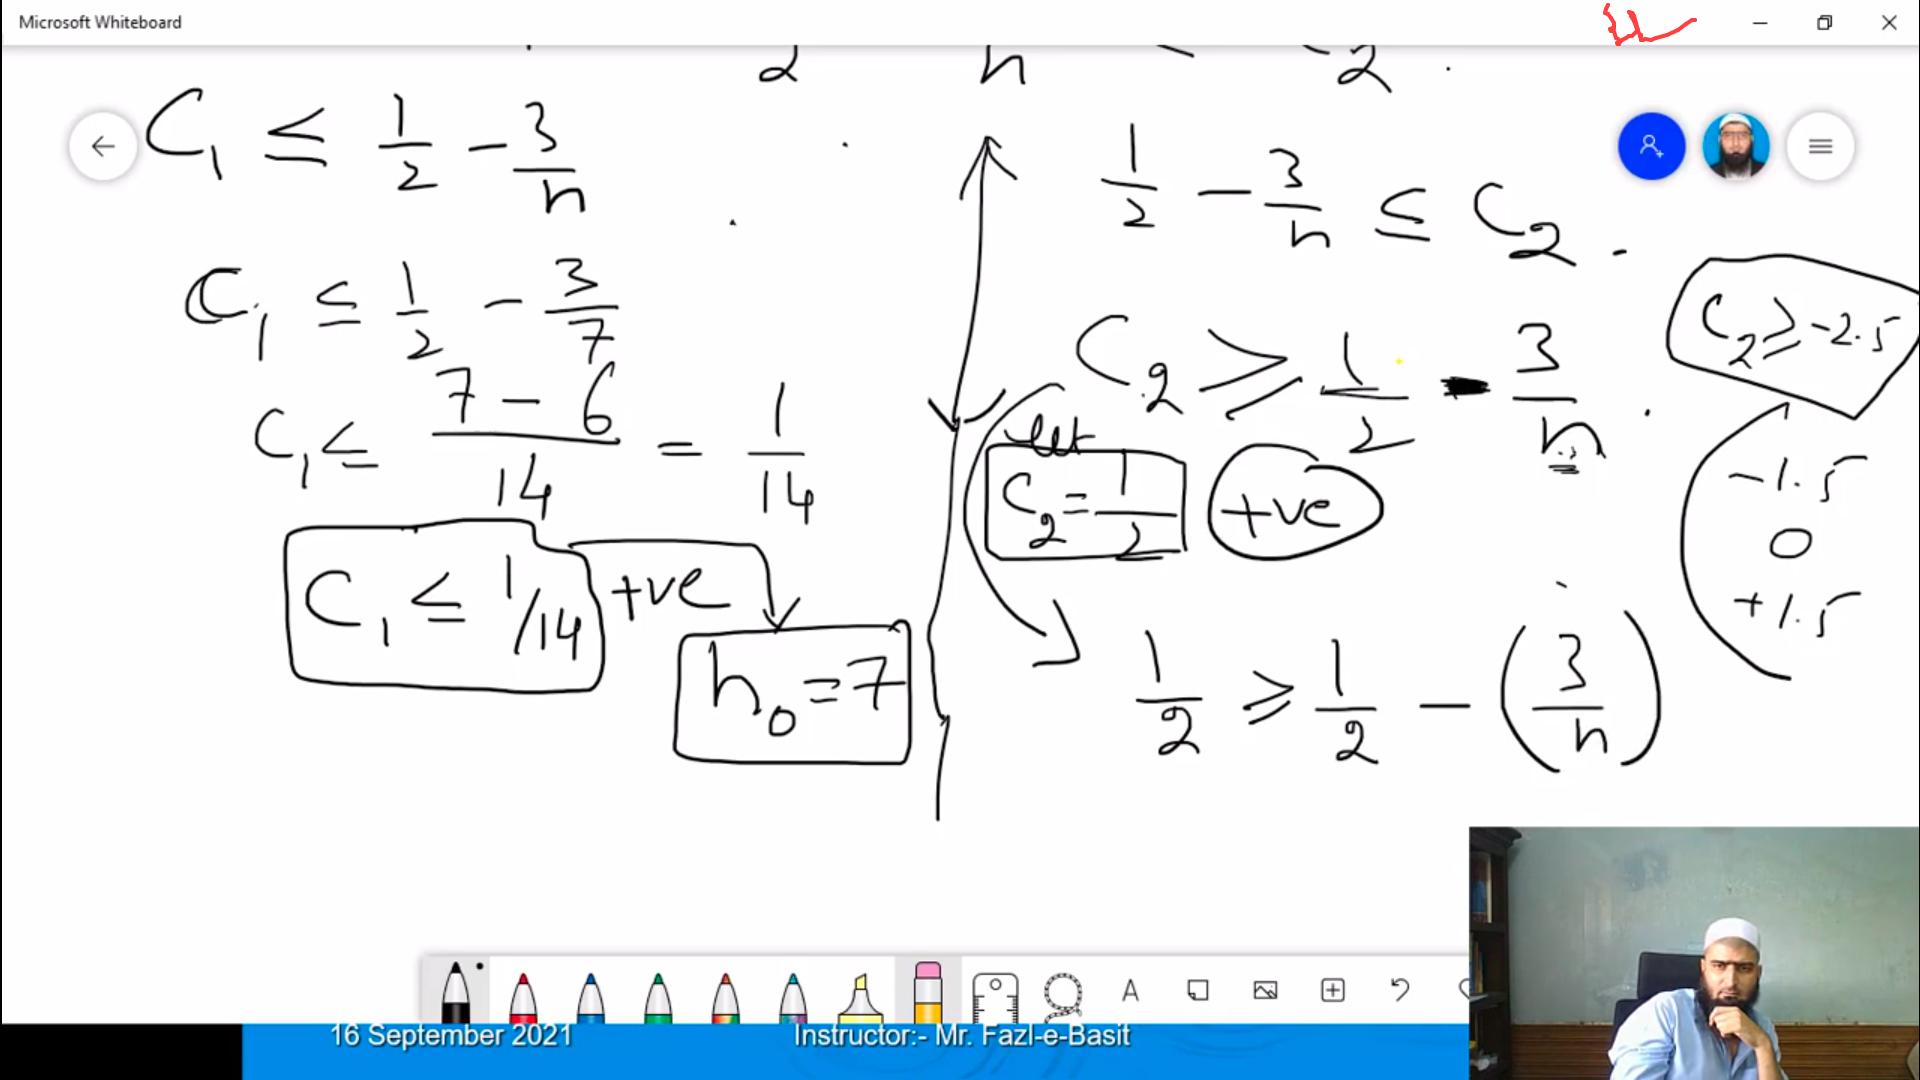 Microsoft Whiteboard
2 n C2
C1 ≤ 1/2 - 3/n
C1 ≤ 1/2 - 3/7
C1 ≤ 7 - 6 / 14 = 1/14
C1 ≤ 1/14 +ve
n0 = 7
1/2 - 3/n ≤ C2
C2 ≥ 1/2 - 3/n
let
C2 = 1/2 +ve
1/2 ≥ 1/2 - (3/n)
C2 ≥ -2.5
-1.5
0
+1.5
A
16 September 2021
Instructor:- Mr. Fazl-e-Basit